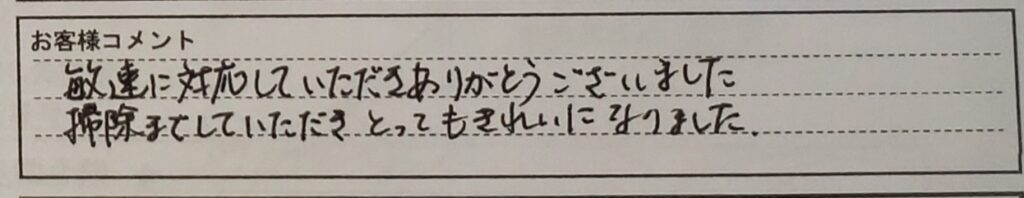 お客様コメント
敏速に対応していただきありがとうございました
掃除までしていただき とってもきれいになりました.